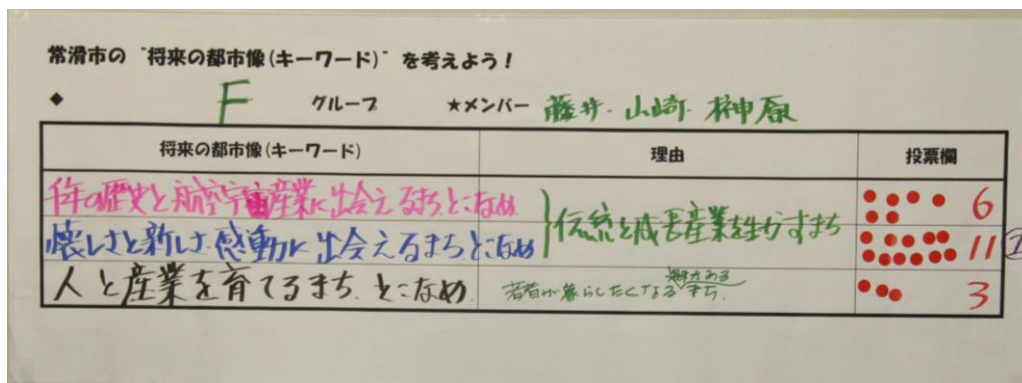 常滑市の"将来の都市像(キーワード)"を考えよう!
◆ F グループ ★メンバー 藤井・山崎・榊原
将来の都市像(キーワード) 理由 投票欄
千年の歴史と航空宇宙産業に出会えるまち とこなめ 6
伝統と成長産業を生かすまち
懐しさと新しさ、感動に出会えるまち とこなめ 11
人と産業を育てるまち、とこなめ 3
魅力ある
若者が暮らしたくなるまち